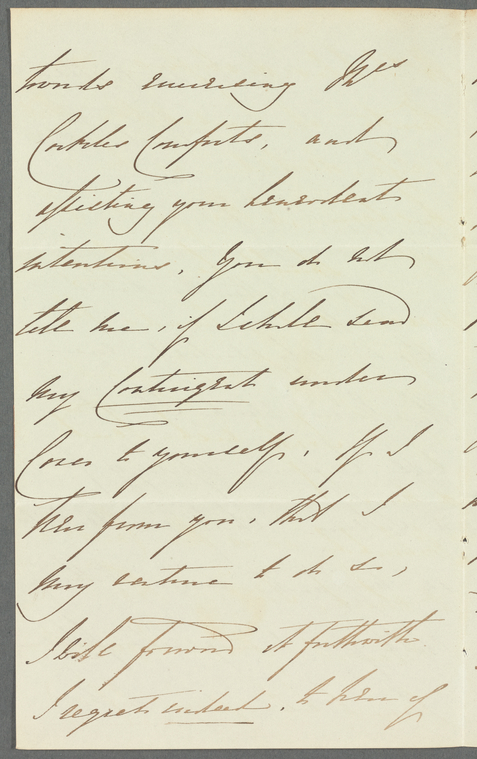 towards increasing Mrs
Cockles Comforts, and
assisting your benevolent
intentions, You do not
tell me, if I shall send
my Contingent under
Cover to yourself, If I
hear from you, that I
may venture to do so,
I will forward it forthwith
I regret indeed, to hear of